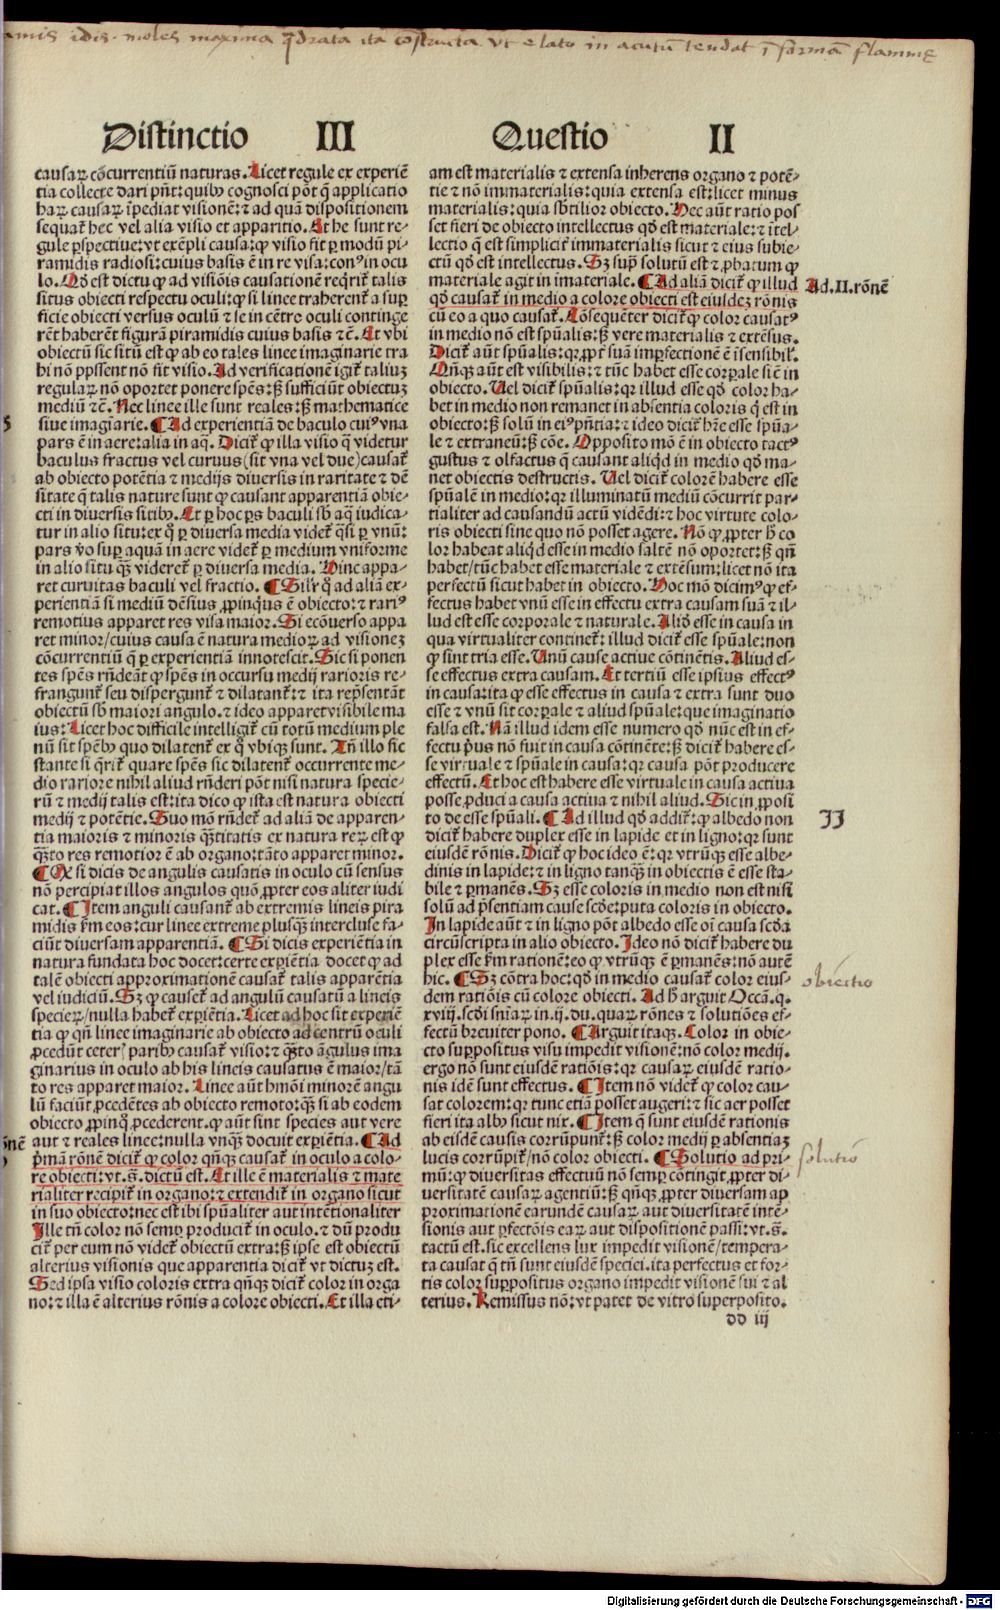 idis. moles maxima q̄drata ita cōstructa vt e lato in acutū tendat ī formā flammę
Distinctio III
Questio II
causaꝝ cōcurrentiū naturas. Licet regule ex experiē
tia collecte dari pn̄t: quibꝫ cognosci pōt q̄ applicatio
haꝝ causaꝝ īpediat visionē: ⁊ ad quā dispositionem
sequat̄ hec vel alia visio et apparitio. At he sunt re-
gule ꝑspectiue: vt exēpli causa: ꝙ visio fit ꝑ modū pi-
ramidis radiosi: cuius basis ē in re visa: conꝰ in ocu
lo. Qḋ est dictu ꝙ ad visiōis causationē req̄rit̄ talis
situs obiecti respectu oculi: ꝙ si linee traherent̄ a suꝑ
ficie obiecti versus oculū ⁊ se in cētre oculi continge
rēt haberēt figurā piramidis cuius basis ⁊c̄. Et vbi
obiectū sic sitū est ꝙ ab eo tales linee imaginarie tra
hi nō pn̄t non fit visio. Ad verificationē igit̄ taliuꝫ
regulaꝝ nō oportet ponere spēs: sꝫ sufficiūt obiectuꝫ
mediū ⁊c̄. Nec linee ille sunt reales: sꝫ mathematice
siue imagīarie. ¶ Ad experientiā de baculo cuiꝰ vna
pars ē in aere: alia in aq̄. Dicit̄ ꝙ illa visio q̄ videtur
baculus fractus vel curuus (sit vna vel due) causat̄
ab obiecto potētia ⁊ medijs diuersis in raritate ⁊ dē
sitate q̄ talis nature sunt ꝙ causant apparentiā obie-
cti in diuersis sitibꝫ. Et ꝑ hoc ꝑs baculi sb̄ aq̄ iudica-
tur in alio situ: ex q̄ ꝑ diuersa media videt̄ q̄si ꝑ vnū:
pars v̄o suꝑ aquā in aere videt̄ ꝑ medium vniforme
in alio situ q̄ꝫ videret̄ ꝑ diuersa media. Hinc appa-
ret curuitas baculi vel fractio. ¶ Sil'r q̄ ad aliā ex-
perientiā si mediū dēsius ꝓpinq̄us ē obiecto: ⁊ rariꝰ
remotius apparet res visa maior. Si ecōuerso appa
ret minor/cuius causa ē natura medioꝝ ad visionez
cōcurrentiū q̄ ꝑ experientiā innotescit. Sic si ponen
tes spēs rn̄deāt ꝙ spēs in occursu medij rarioris re-
frangunt̄ seu dispergunt̄ ⁊ dilatant̄: ⁊ ita rep̄sentāt
obiectū sb̄ maiori angulo. ⁊ ideo apparet visibile ma
ius: Licet hoc difficile intelligit̄ cū totū medium ple
nū sit spēbꝫ quo dilatent̄ ex q̄ vbiqꝫ sunt. Tn̄ illo sic
stante si q̄rit̄ quare spēs sic dilatent̄ occurrente me-
dio rariore nihil aliud rn̄deri pōt nisi natura specie-
rū ⁊ medij talis est: ita dico ꝙ ista est natura obiecti
medij ⁊ potētie. Suo mō rn̄det̄ ad aliā de apparen-
tia maioris ⁊ minoris q̄ꝫtitatis ex natura reꝝ est ꝙ
q̄ꝫto res remotior ē ab organo: tāto apparet minor.
¶ Et si dicis de angulis causatis in oculo cū sensus
nō percipiat illos angulos quō ꝓpter eos aliter iudi
cat. ¶ Item anguli causant̄ ab extremis lineis pira
midis s̄m eos: cur linee extreme plusq̄ꝫ intercluse fa-
ciūt diuersam apparentiā. ¶ Si dicis experiētia in
natura fundata hoc docet: certe exꝑiētia docet ꝙ ad
talē obiecti approximationē causat̄ talis apparētia
vel iudiciū. Sꝫ ꝙ causet̄ ad angulū causatū a lineis
specieꝝ/nulla habet̄ exꝑiētia. Licet ad hoc sit experiē
tia ꝙ qn̄ linee imaginarie ab obiecto ad centrū oculi
ꝓcedūt ceterꝭ paribꝫ causat̄ visio: ⁊ q̄ꝫto āgulus ima
ginarius in oculo ab his lineis causatus ē maior/tā
to res apparet maior. Linee aūt hmōi minorē angu
lū faciūt ꝓcedētes ab obiecto remoto: q̄ꝫ si ab eodem
obiecto ꝓpinq̄ ꝓcederent. ꝙ aūt sint species aut vere
aut ⁊ reales linee: nulla vnq̄ꝫ docuit exꝑiētia. ¶ Ad
p̄mā rōnē dicit̄ ꝙ color qn̄qꝫ causat̄ in oculo a colo-
re obiecti: vt.s̄. dictū est. Et ille ē materialis ⁊ mate
rialiter recipit̄ in organo: ⁊ extendit̄ in organo sicut
in suo obiecto: nec est ibi spūaliter aut intētionaliter
Ille tn̄ color nō semꝑ producit̄ in oculo. ⁊ dū produ
cit̄ per eum nō videt̄ obiectū extra: sꝫ ipse est obiectū
alterius visionis que apparentia dicit̄ vt dictuꝫ est.
Sed ipsa visio coloris extra qn̄qꝫ dicit̄ color in orga
no: ⁊ illa ē alterius rōnis a colore obiecti. Et illa eti-
am est materialis ⁊ extensa inherens organo ⁊ potē-
tie ⁊ nō immaterialis: quia extensa est: licet minus
materialis: quia sb̄tilior obiecto. Nec aūt ratio pos
set fieri de obiecto intellectus qḋ est materiale: ⁊ itel-
lectio q̄ est simplicit̄ immaterialis sicut ⁊ eius subie-
ctū qḋ est intellectus. Sꝫ sup̄ solutū est ⁊ ꝓbatum ꝙ
materiale agit in imateriale. ¶ Ad aliā dicit̄ ꝙ illud
qḋ causat̄ in medio a colore obiecti est eiusdeꝫ rōnis
cū eo a quo causat̄. Cōsequēter dicit̄ ꝙ color causatꝰ
in medio nō est spūalis: sꝫ vere materialis ⁊ extēsus.
Dicit̄ aūt spūalis: qꝛ ꝓpt̄ suā imꝑfectionē ē īsensibil'.
Qn̄qꝫ aūt est visibilis: ⁊ tūc habet esse corꝑale sic in
obiecto. Uel dicit̄ spūalis: qꝛ illud esse qḋ color ha-
bet in medio non remanet in absentia coloris q̄ est in
obiecto: sꝫ solū in eiꝰ p̄ntia: ⁊ ideo dicit̄ h̄re esse spūa-
le ⁊ extraneū: sꝫ cōe. Opposito mō ē in obiecto tactꝰ
gustus ⁊ olfactus q̄ causant aliqḋ in medio qḋ ma-
net obiectis destructis. Uel dicit̄ colorē habere esse
spūalē in medio: qꝛ illuminatū mediū cōcurrit par-
tialiter ad causandū actū vidēdi: ⁊ hoc virtute colo-
ris obiecti sine quo non posset agere. Nō ꝙ ꝓpter h̄ co
lor habeat aliqḋ esse in medio saltē nō oportet: sꝫ qn̄
habet/tūc habet esse materiale ⁊ extēsum: licet nō ita
perfectū sicut habet in obiecto. Hoc mō dicimꝰ ꝙ ef-
fectus habet vnū esse in effectu extra causam suā ⁊ il-
lud est esse corporale ⁊ naturale. Aliḋ esse in causa in
qua virtualiter continet̄: illud dicit̄ esse spūale: non
ꝙ sint tria esse. Unū cause actiue cōtinētis. Aliud es-
se effectus extra causam. Et tertiū esse ipsius effectꝰ
in causa: ita ꝙ esse effectus in causa ⁊ extra sunt duo
esse ⁊ vnū sit corꝑale ⁊ aliud spūale: que imaginatio
falsa est. Nā illud idem esse numero qḋ nūc est in ef-
fectu p̄us nō fuit in causa cōtinēte: sꝫ dicit̄ habere es-
se virtuale ⁊ spūale in causa: qꝛ causa pōt producere
effectū. Et hoc est habere esse virtuale in causa actiua
posse ꝓduci a causa actiua ⁊ nihil aliud. Sic in ꝓposi
to de esse spūali. ¶ Ad illud qḋ addit̄: ꝙ albedo non
dicit̄ habere duplex esse in lapide et in ligno: qꝛ sunt
eiusdē rōnis. Dicit̄ ꝙ hoc ideo ē: qꝛ vtrūqꝫ esse albe-
dinis in lapide: ⁊ in ligno tanq̄ꝫ in obiectis ē esse sta-
bile ⁊ ꝑmanēs. Sꝫ esse coloris in medio non est nisi
solū ad p̄sentiam cause scḋe: puta coloris in obiecto.
In lapide aūt ⁊ in ligno pōt albedo esse oī causa scḋa
circūscripta in alio obiecto. Ideo nō dicit̄ habere du
plex esse s̄m rationē: eo ꝙ vtrūqꝫ ē ꝑmanēs: nō autē
hic. ¶ Sꝫ cōtra hoc: qḋ in medio causat̄ color eius-
dem ratiōis cū colore obiecti. Ad h̄ arguit Occā. q.
xviij. scḋi sn̄iaꝝ in .ij. du. quaꝝ rōnes ⁊ solutiōes ef-
fectū breuiter pono. ¶ Arguit itaqꝫ. Color in obie-
cto suꝑpositus visu impedit visionē: nō color medij.
ergo nō sunt eiusdē ratiōis: qꝛ causaꝝ eiusdē ratio-
nis idē sunt effectus. ¶ Item nō videt̄ ꝙ color cau-
sat colorem: qꝛ tunc etiā posset augeri: ⁊ sic aer posset
fieri ita albꝰ sicut nix. ¶ Item q̄ sunt eiusdē rationis
ab eisdē causis corrūpunt̄: sꝫ color medij ꝑ absentiaꝫ
lucis corrūpit̄/nō color obiecti. ¶ Solutio ad pri-
mū: ꝙ diuersitas effectuū nō semꝑ cōtingit ꝓpter di-
uersitatē causaꝝ agentiū: sꝫ qn̄qꝫ ꝓpter diuersam ap
proximationē earundē causaꝝ aut diuersitatē intē-
sionis aut ꝑfectōis eaꝝ aut dispositionē passi: vt.s̄.
tactū est. sic excellens lux impedit visionē/tempera-
ta causat q̄ tn̄ sunt eiusdē speciei. ita perfectus et for-
tis color suꝑpositus organo impedit visionē sui ⁊ al
terius. Remissus nō: vt patet de vitro superposito.
dd iij
Ad.II.rōnē
II
obiectio
solutio
Digitalisierung gefördert durch die Deutsche Forschungsgemeinschaft - DFG